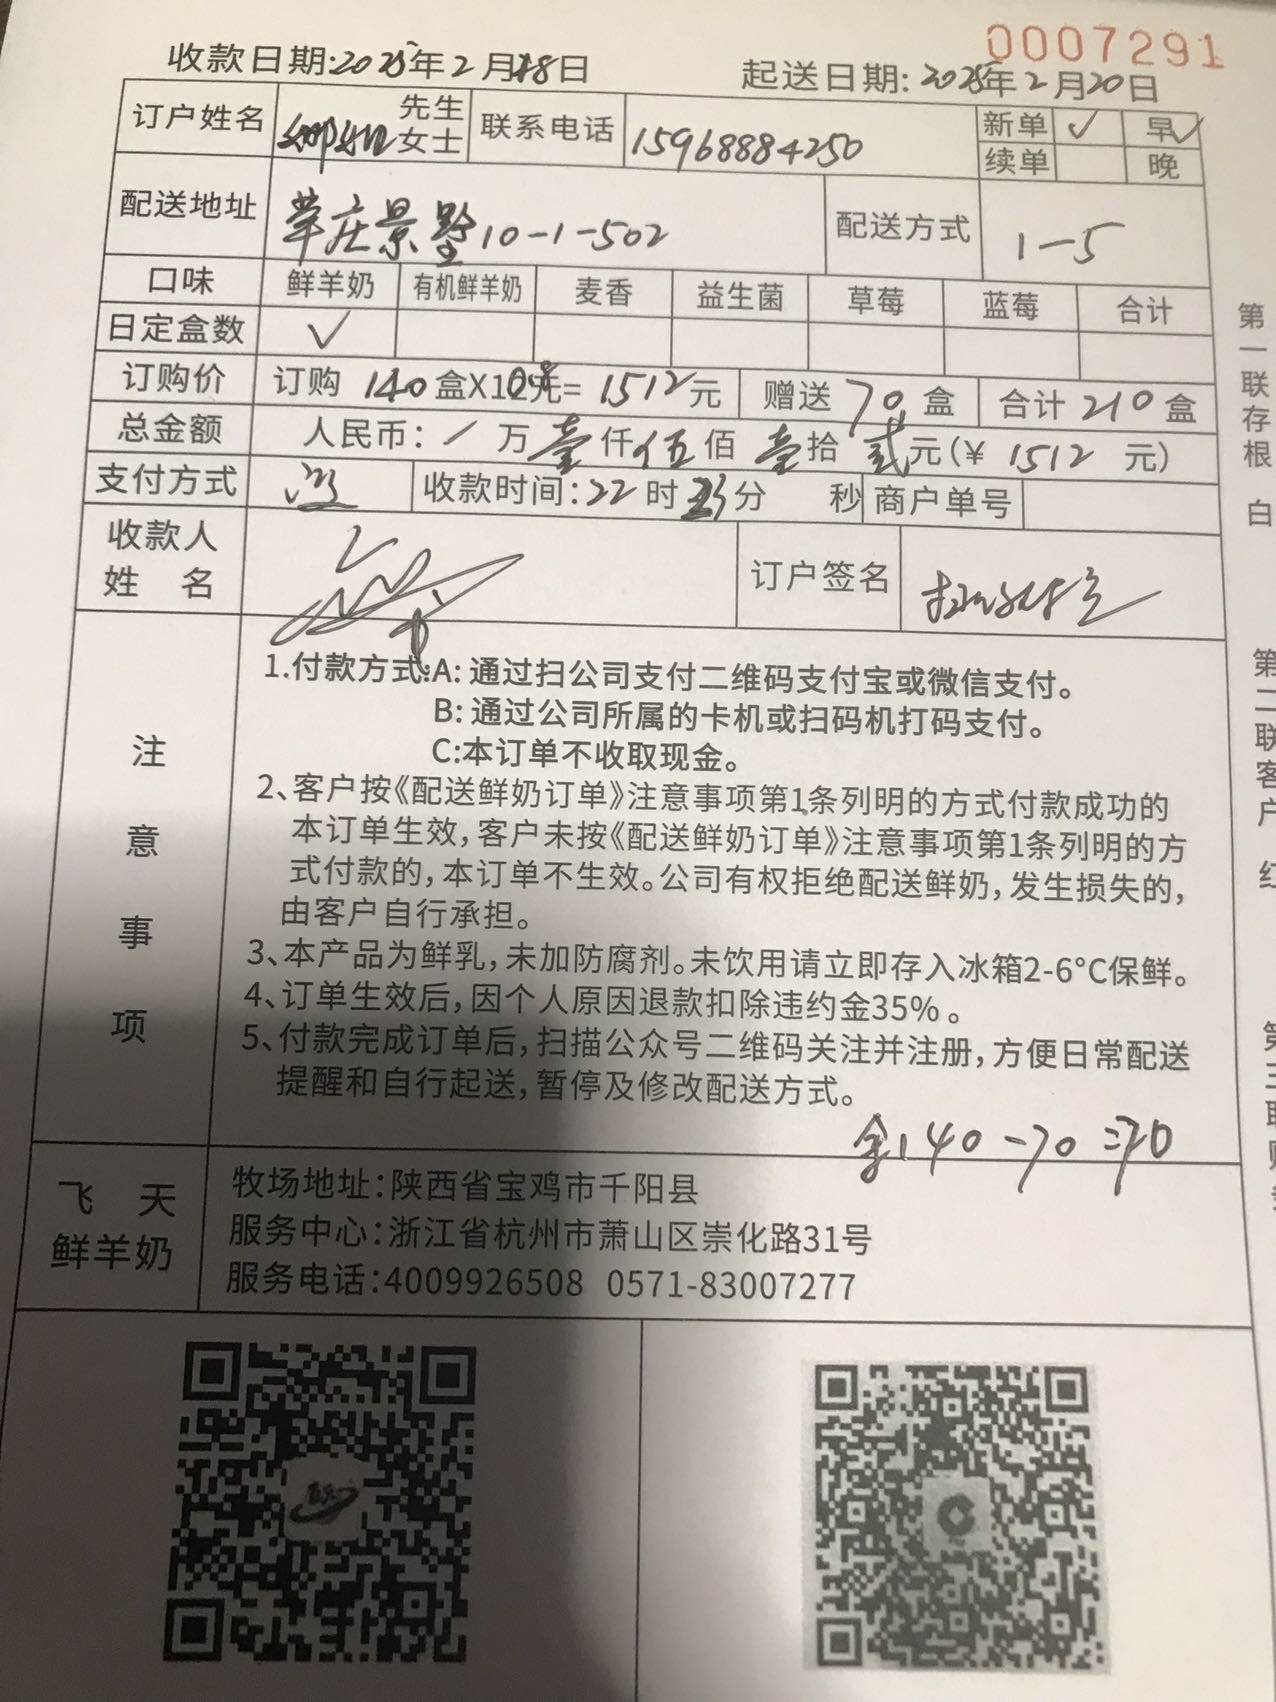 0007291
收款日期:2025年2月18日 起送日期:2025年2月20日
订户姓名 先生 女士 联系电话 15968884250 新单 ✓ 早 ✓
续单 晚
配送地址 莘庄景墅10-1-502 配送方式 1-5
口味 鲜羊奶 有机鲜羊奶 麦香 益生菌 草莓 蓝莓 合计
日定盒数 ✓
订购价 订购 140 盒X10.8元= 1512元 赠送 70 盒 合计 210 盒
总金额 人民币: / 万 壹 仟 伍 佰 壹 拾 贰 元(¥ 1512 元)
支付方式 收款时间:22时 分 秒 商户单号
收款人
姓 名
订户签名
注意事项
1.付款方式:A: 通过扫公司支付二维码支付宝或微信支付。
B: 通过公司所属的卡机或扫码机打码支付。
C:本订单不收取现金。
2、客户按《配送鲜奶订单》注意事项第1条列明的方式付款成功的
本订单生效,客户未按《配送鲜奶订单》注意事项第1条列明的方
式付款的,本订单不生效。公司有权拒绝配送鲜奶,发生损失的,
由客户自行承担。
3、本产品为鲜乳,未加防腐剂。未饮用请立即存入冰箱2-6°C保鲜。
4、订单生效后,因个人原因退款扣除违约金35%。
5、付款完成订单后,扫描公众号二维码关注并注册,方便日常配送
提醒和自行起送,暂停及修改配送方式。
余140-70=70
飞天
鲜羊奶
牧场地址:陕西省宝鸡市千阳县
服务中心:浙江省杭州市萧山区崇化路31号
服务电话:4009926508 0571-83007277
第一联存根 白
第二联客户 红